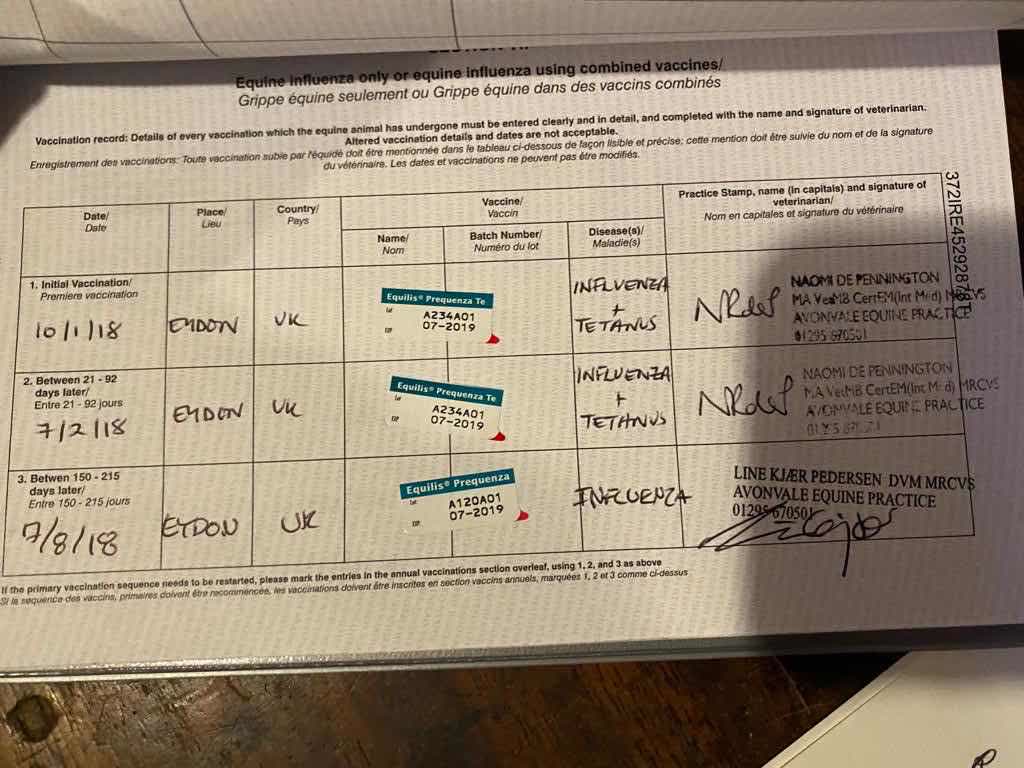 Equine influenza only or equine influenza using combined vaccines/
Grippe équine seulement ou Grippe équine dans des vaccins combinés
Vaccination record: Details of every vaccination which the equine animal has undergone must be entered clearly and in detail, and completed with the name and signature of veterinarian.
Altered vaccination details and dates are not acceptable.
Enregistrement des vaccinations: Toute vaccination subie par l'équidé doit être mentionnée dans le tableau ci-dessous de façon lisible et précise; cette mention doit être suivie du nom et de la signature
du vétérinaire. Les dates et vaccinations ne peuvent pas être modifiés.
Date/
Date
Place/
Lieu
Country/
Pays
Vaccine/
Vaccin
Name/
Nom
Batch Number/
Numéro du lot
Disease(s)/
Maladie(s)
Practice Stamp, name (in capitals) and signature of
veterinarian/
Nom en capitales et signature du vétérinaire
1. Initial Vaccination/
Premiere vaccination
10/1/18
EYDON
UK
Equilis® Prequenza Te
A234A01
07-2019
INFLUENZA
+
TETANUS
NAOMI DE PENNINGTON
MA VetMB CertEM(Int Med) MRCVS
AVONVALE EQUINE PRACTICE
01295 670501
2. Between 21 - 92
days later/
Entre 21 - 92 jours
7/2/18
EYDON
UK
Equilis® Prequenza Te
A234A01
07-2019
INFLUENZA
+
TETANUS
NAOMI DE PENNINGTON
MA VetMB CertEM(Int Med) MRCVS
AVONVALE EQUINE PRACTICE
3. Betwen 150 - 215
days later/
Entre 150 - 215 jours
7/8/18
EYDON
UK
Equilis® Prequenza
A120A01
07-2019
INFLUENZA
LINE KJÆR PEDERSEN DVM MRCVS
AVONVALE EQUINE PRACTICE
01295 670501
If the primary vaccination sequence needs to be restarted, please mark the entries in the annual vaccinations section overleaf, using 1, 2, and 3 as above
Si la sequence des vaccins, primaires doivent être recommencée, les vaccinations doivent être inscrites en section vaccins annuels, marquées 1, 2 et 3 comme ci-dessus